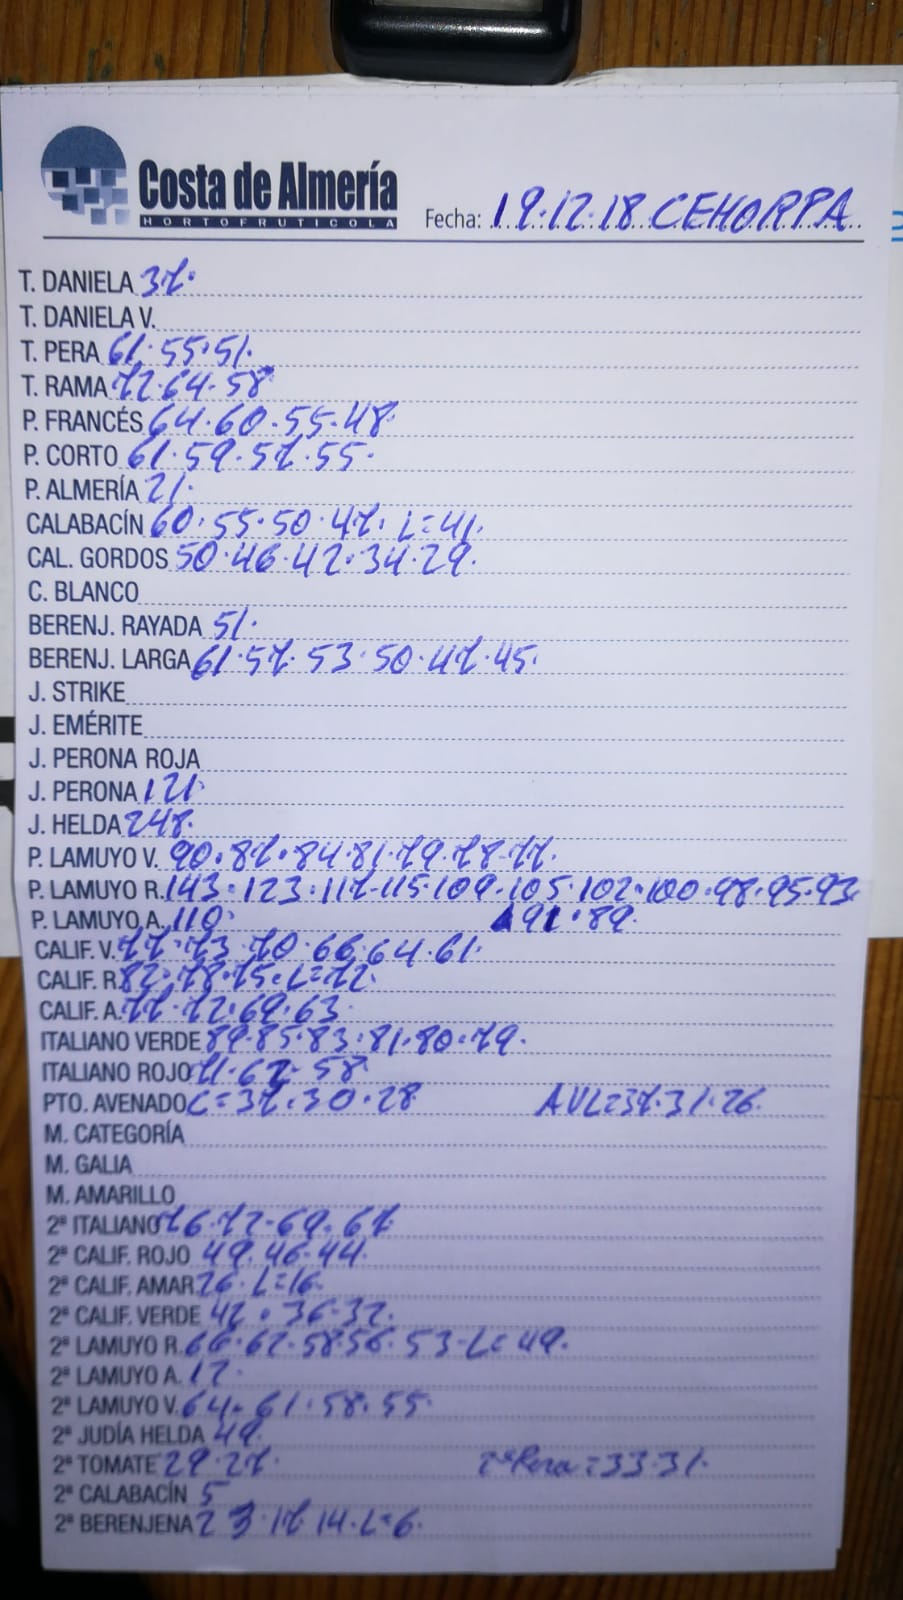 Costa de Almería
HORTOFRUTICOLA
Fecha: 19.12.18 CEHORPA
T. DANIELA 37.
T. DANIELA V.
T. PERA 61.55.51.
T. RAMA 72.64.58
P. FRANCÉS 64.60.55.48.
P. CORTO 61.59.57.55.
P. ALMERÍA 21.
CALABACÍN 60.55.50.47. L=41.
CAL. GORDOS 50.46.42.34.29.
C. BLANCO
BERENJ. RAYADA 51.
BERENJ. LARGA 61.57.53.50.47.45.
J. STRIKE
J. EMÉRITE
J. PERONA ROJA
J. PERONA 121.
J. HELDA 248.
P. LAMUYO V. 90.87.84.81.79.78.77.
P. LAMUYO R. 143.123.117.115.109.105.102.100.98.95.93
P. LAMUYO A. 110. 91.89.
CALIF. V. 77.73.70.66.64.61.
CALIF. R. 82.78.75.L=72.
CALIF. A. 77.72.69.63
ITALIANO VERDE 89.85.83.81.80.79.
ITALIANO ROJO 71.67.58.
PTO. AVENADO C=37.30.28 AVL=37.31.26.
M. CATEGORÍA
M. GALIA
M. AMARILLO
2ª ITALIANO 76.72.69.67.
2ª CALIF. ROJO 49.46.44.
2ª CALIF. AMAR 26. L=16.
2ª CALIF. VERDE 42.36.32.
2ª LAMUYO R. 66.62.58.56.53.L=49.
2ª LAMUYO A. 17.
2ª LAMUYO V. 64.61.58.55.
2ª JUDÍA HELDA 49.
2ª TOMATE 29.27. 2ªPera=33.31.
2ª CALABACÍN 5
2ª BERENJENA 23.17.14.L=6.